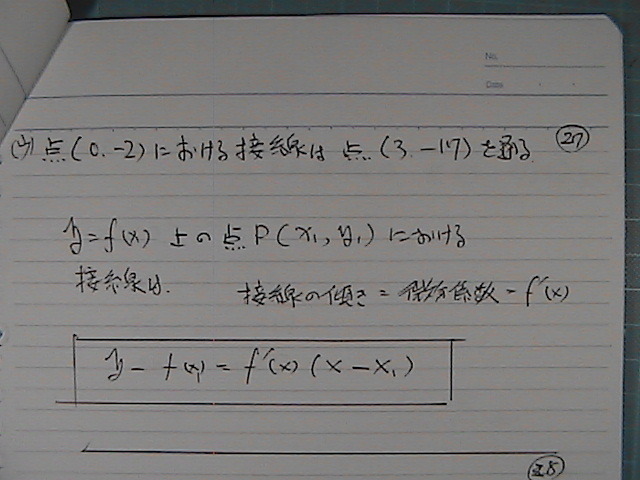 No.
Date
(ウ) 点(0.-2)における接線は 点(3.-17)を通る ㉗
y=f(x) 上の点P(x₁, y₁)における
接線は. 接線の傾き = 微分係数 = f'(x)
y - f(x₁) = f'(x) (x - x₁)
㉘